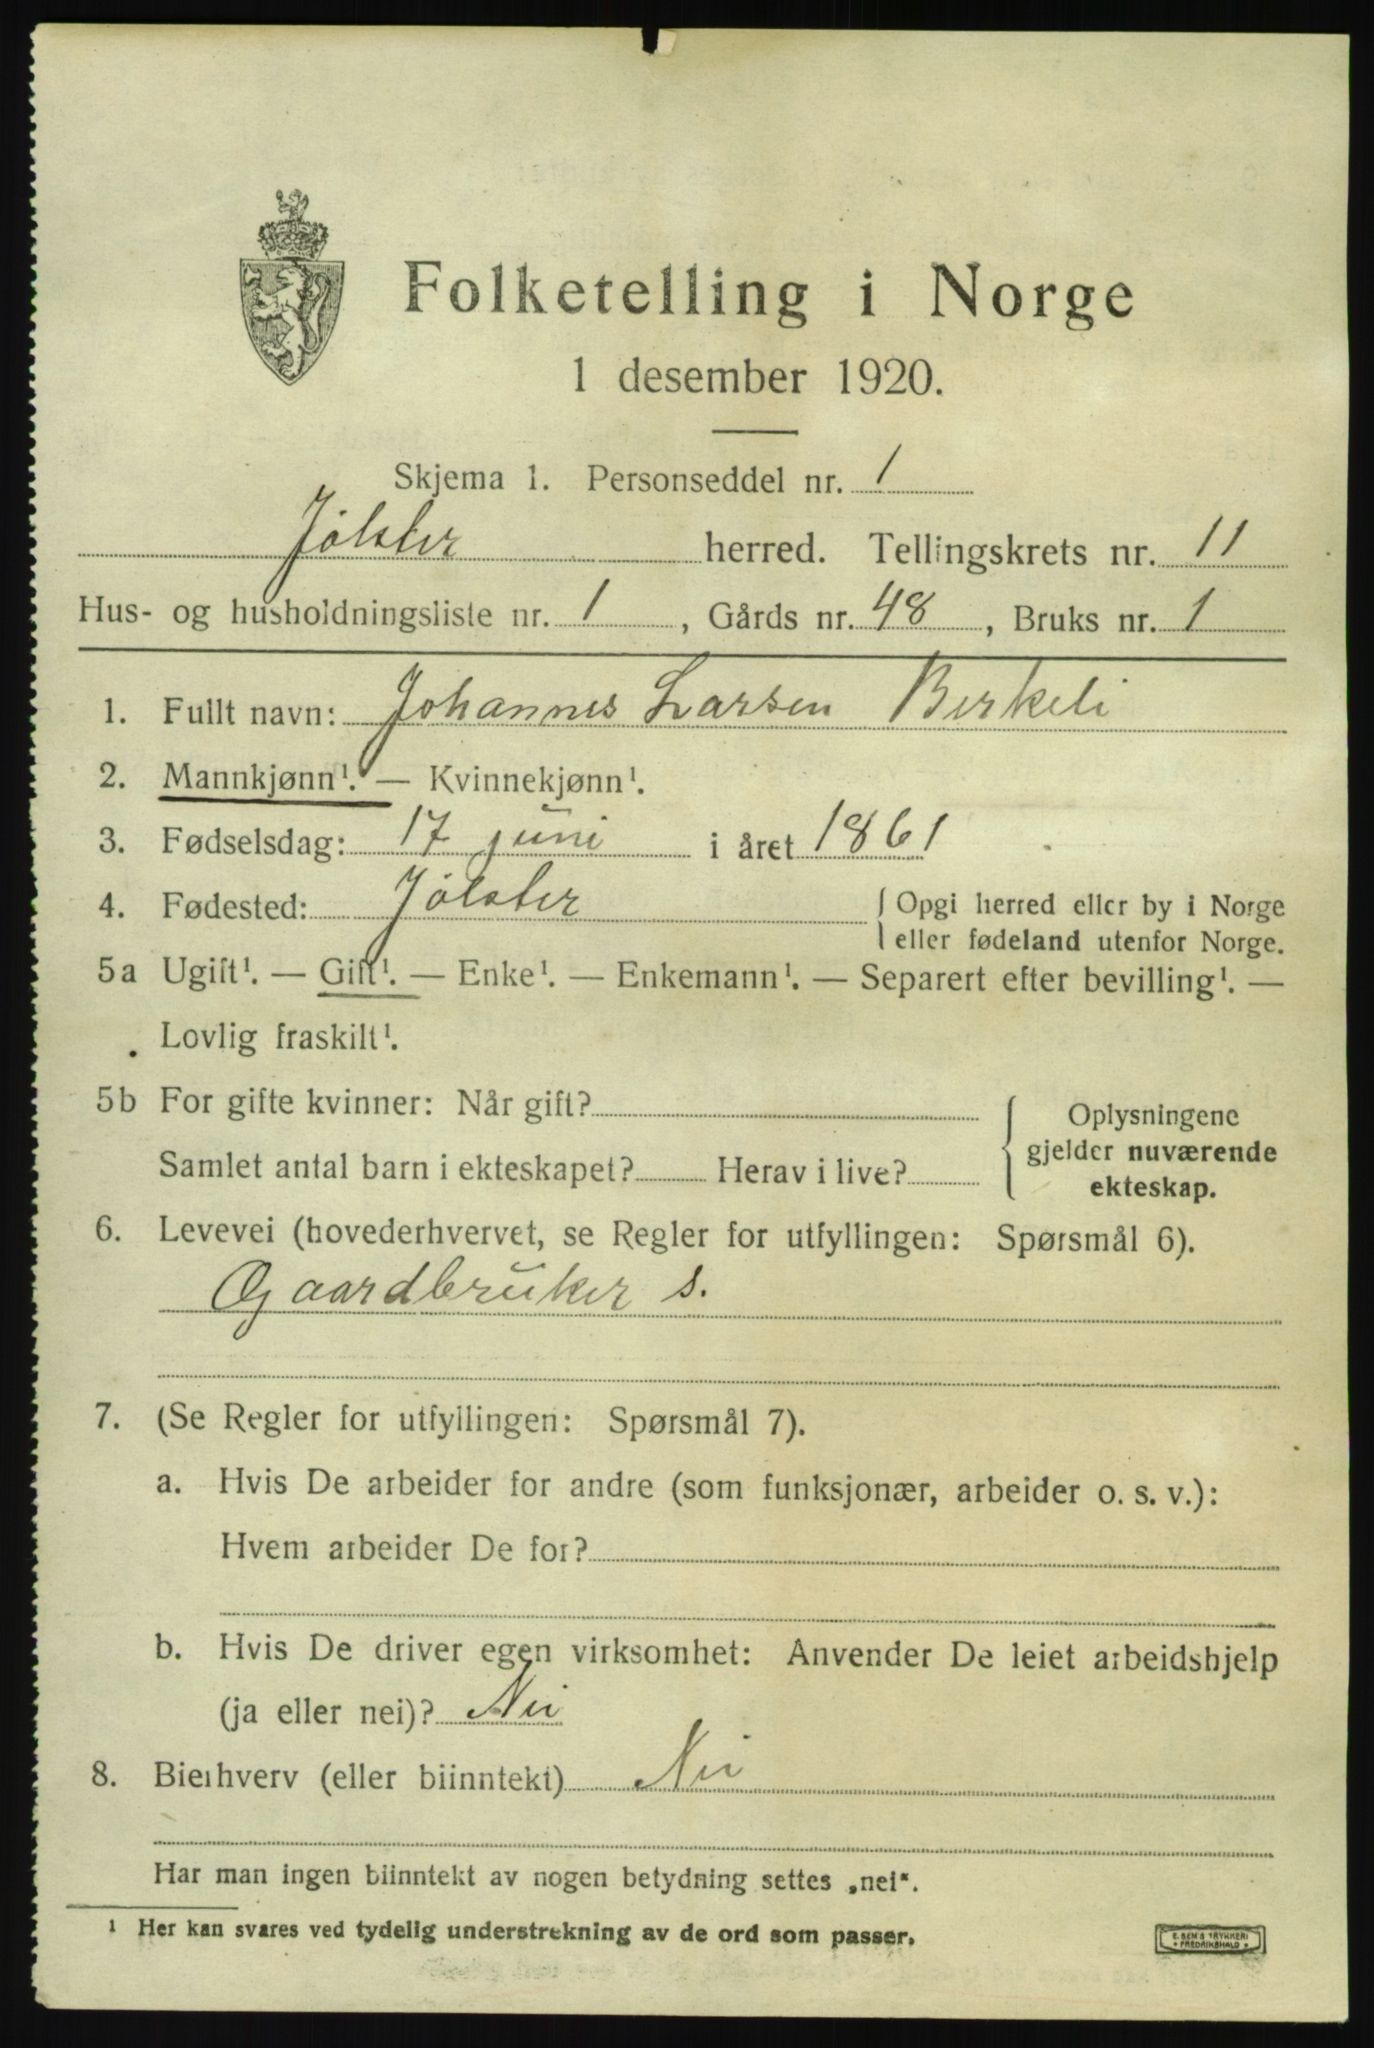 Folketelling i Norge
1 desember 1920.
Skjema 1. Personseddel nr. 1
Jølster herred. Tellingskrets nr. 11
Hus- og husholdningsliste nr. 1, Gårds nr. 48, Bruks nr. 1
1. Fullt navn: Johannes Larsen Berkeli
2. Mannkjønn¹. — Kvinnekjønn¹.
3. Fødselsdag: 17 juni i året 1861
4. Fødested: Jølster { Opgi herred eller by i Norge
eller fødeland utenfor Norge.
5a Ugift¹. — Gift¹. — Enke¹. — Enkemann¹. — Separert efter bevilling¹. —
Lovlig fraskilt¹.
5b For gifte kvinner: Når gift?
Samlet antal barn i ekteskapet? Herav i live?
{ Oplysningene
gjelder nuværende
ekteskap.
6. Levevei (hovederhvervet, se Regler for utfyllingen: Spørsmål 6).
Gaardbruker s.
7. (Se Regler for utfyllingen: Spørsmål 7).
a. Hvis De arbeider for andre (som funksjonær, arbeider o. s. v.):
Hvem arbeider De for?
b. Hvis De driver egen virksomhet: Anvender De leiet arbeidshjelp
(ja eller nei)? Nei
8. Bierhverv (eller biinntekt) Nei
Har man ingen biinntekt av nogen betydning settes „nei“.
¹ Her kan svares ved tydelig understrekning av de ord som passer.
E. SEM'S TRYKKERI
FREDRIKSHALD